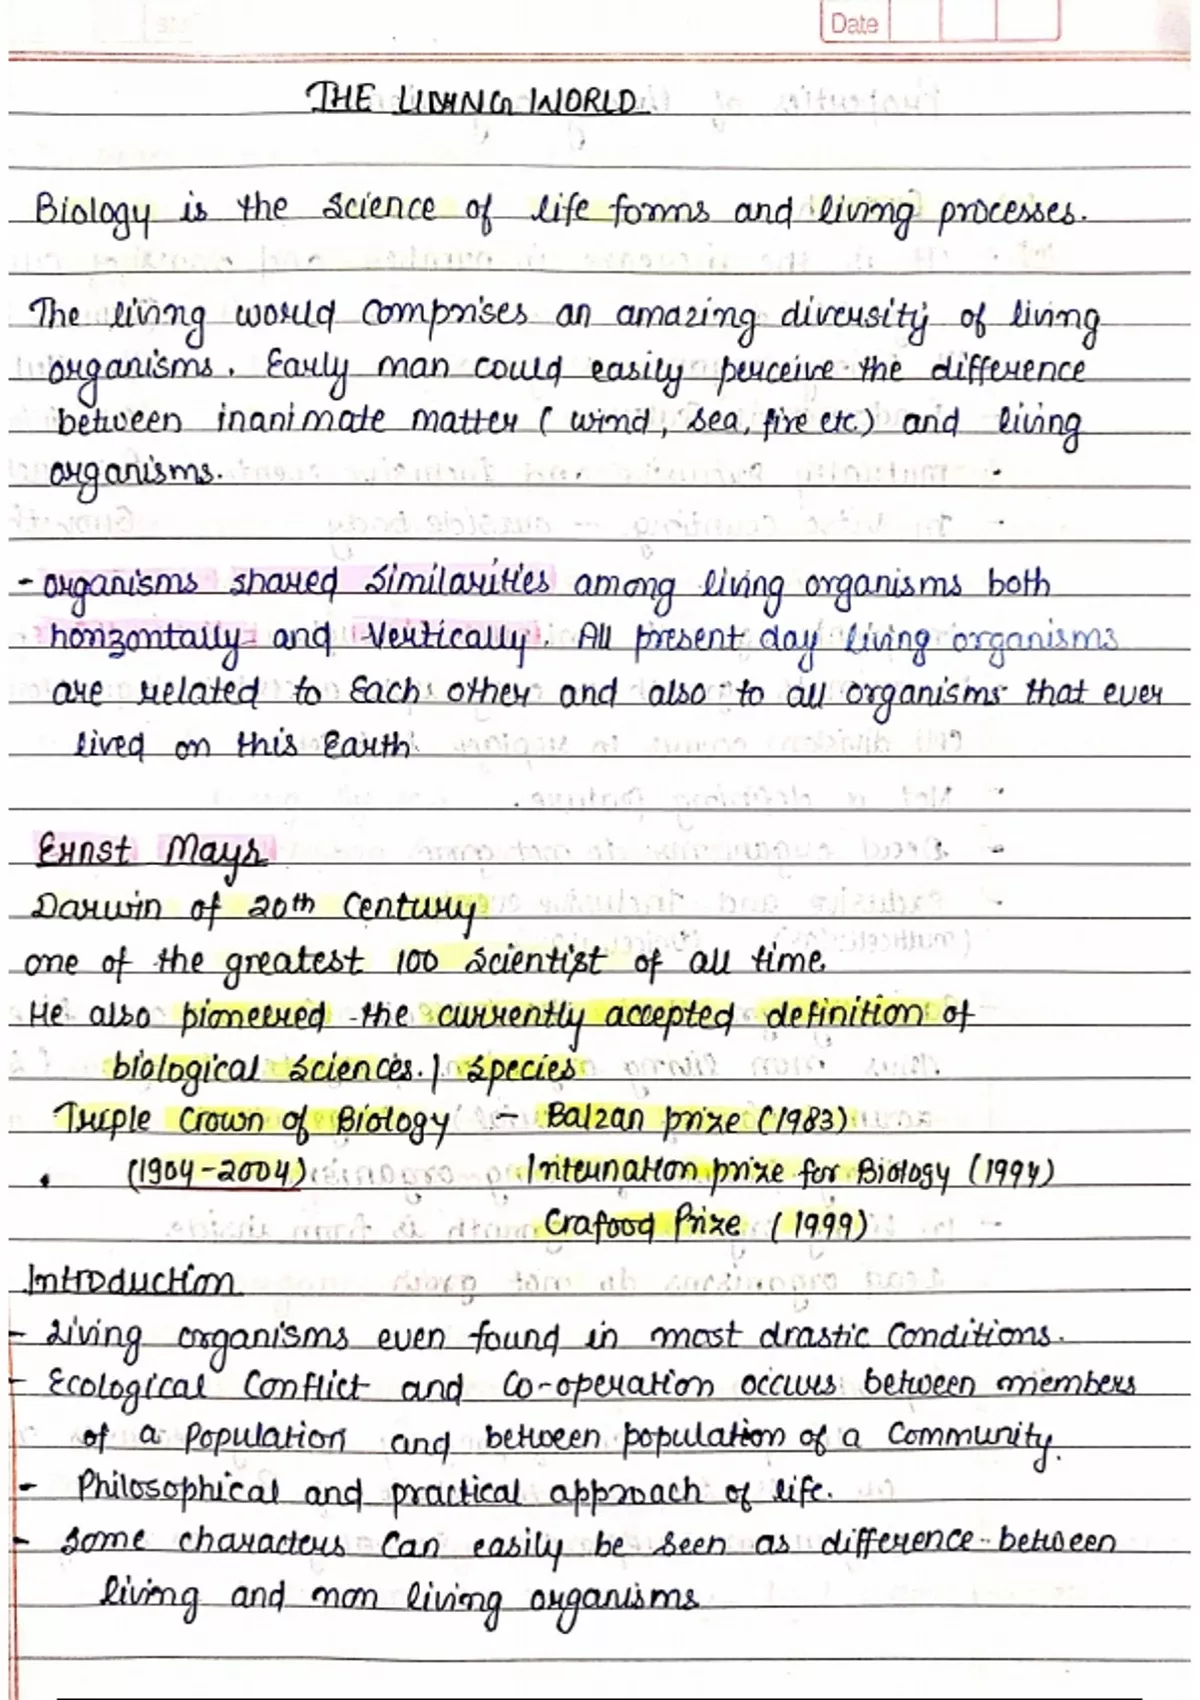 Date
THE LIVING WORLD
Biology is the science of life forms and living processes.
The living world comprises an amazing diversity of living
organisms. Early man could easily perceive the difference
between inanimate matter ( wind, sea, fire etc.) and living
organisms.
- organisms shared similarities among living organisms both
horizontally and vertically. All present day living organisms
are related to Each other and also to all organisms that ever
lived on this Earth.
Ernst Mayr
Darwin of 20th Century
one of the greatest 100 scientist of all time.
He also pioneered the currently accepted definition of
biological sciences. | species
Triple Crown of Biology - Balzan prize (1983)
(1904-2004) Internation prize for Biology (1994)
Crafood Prize (1999)
Introduction
- Living organisms even found in most drastic Conditions.
- Ecological Conflict and Co-operation occurs between members
of a Population and between population of a Community.
- Philosophical and practical approach of life.
- some characters Can easily be seen as difference between
living and non living organisms